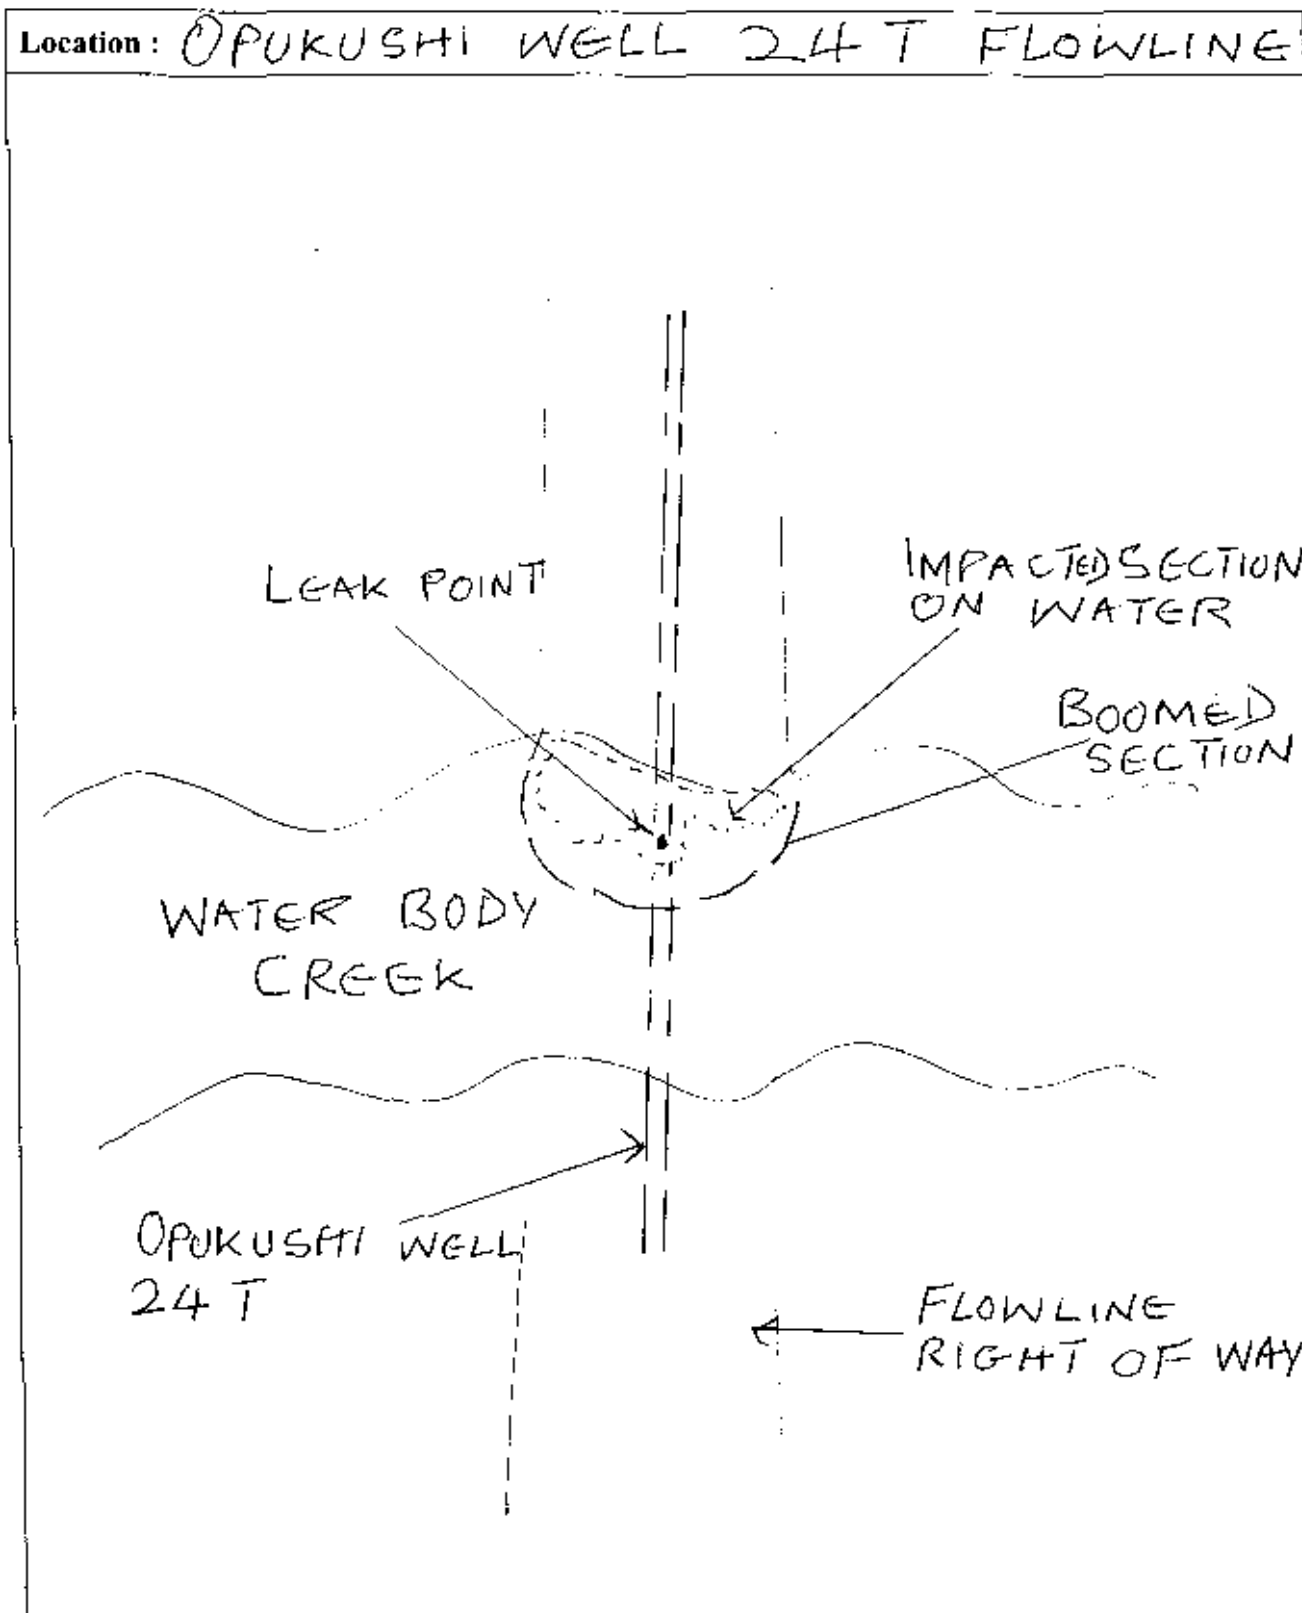 Location : OPUKUSHI WELL 24 T FLOWLINE
LEAK POINT
IMPACTED SECTION
ON WATER
BOOMED
SECTION
WATER BODY
CREEK
OPUKUSHI WELL
24 T
FLOWLINE
RIGHT OF WAY